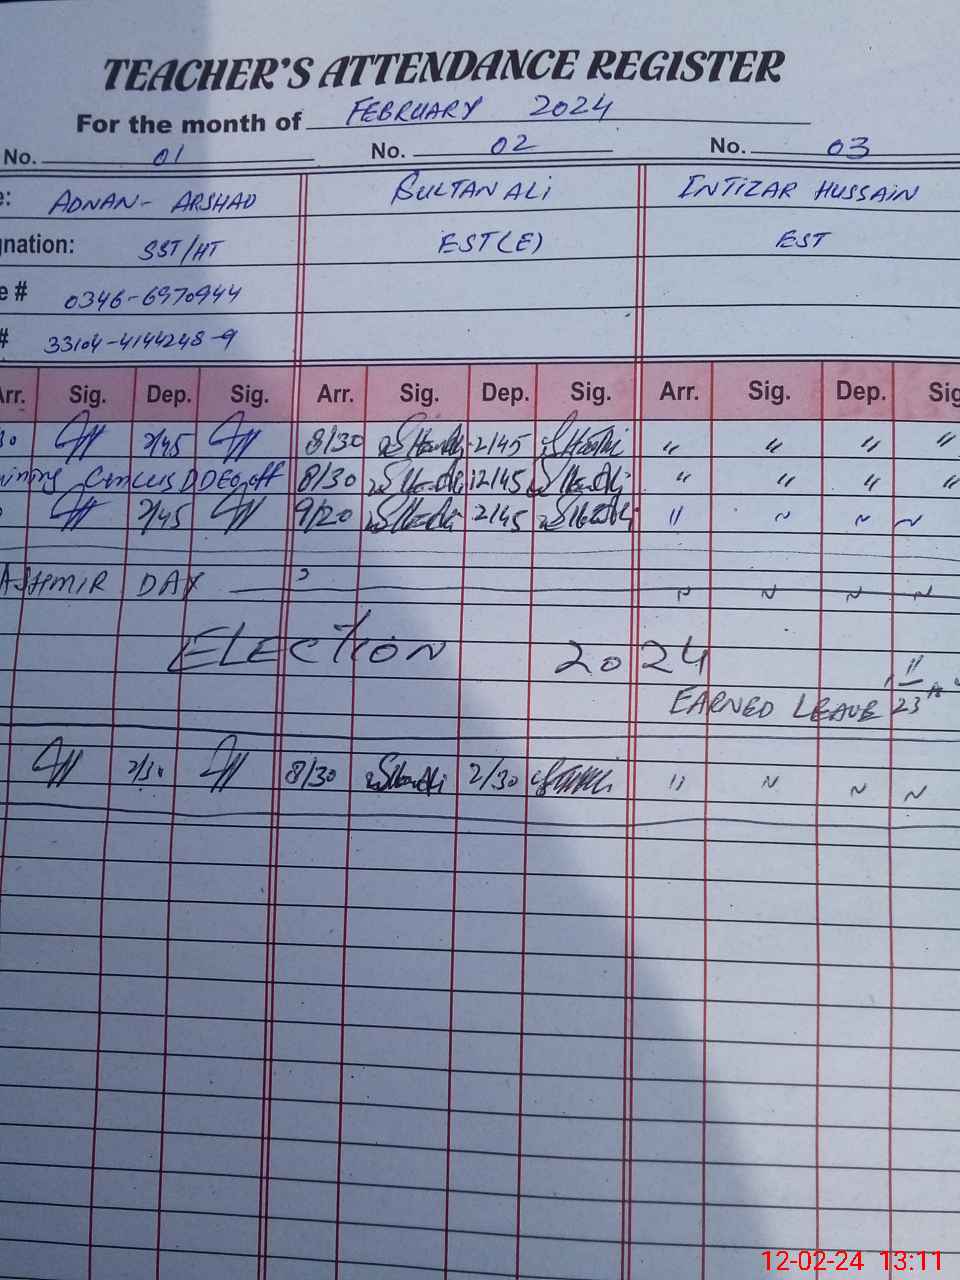 TEACHER'S ATTENDANCE REGISTER
For the month of FEBRUARY 2024
No. 01 No. 02 No. 03
e: ADNAN- ARSHAD SULTAN ALi INTIZAR HUSSAiN
gnation: SST/HT EST(E) EST
e # 0346-6970944
# 33104-4144248-9
Arr. Sig. Dep. Sig. Arr. Sig. Dep. Sig. Arr. Sig. Dep. Sig
30 2/45 8/30 2/45 " " " "
ining Cencus DDEO, off 8/30 12/45 " " " "
2/45 9/20 2/45 " ~ ~ ~
ASHMIR DAY ~ ~ ~ ~
ELECTiON 2024
11
EARNED LEAVE 23
2/30 8/30 2/30 " ~ ~ ~
12-02-24 13:11